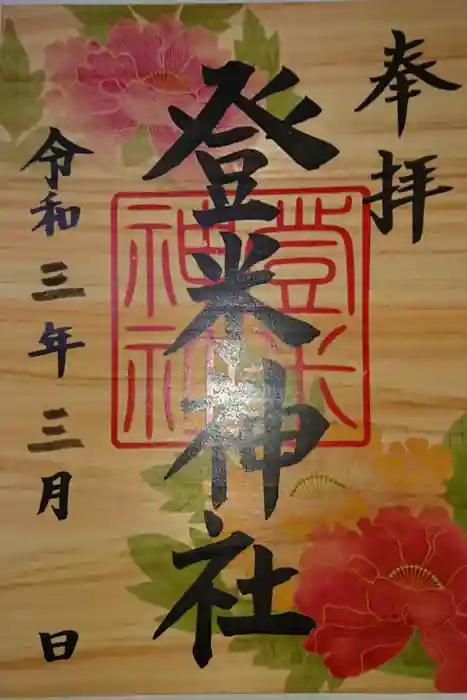 奉拝
登米神社
登米神社
令和三年三月 日